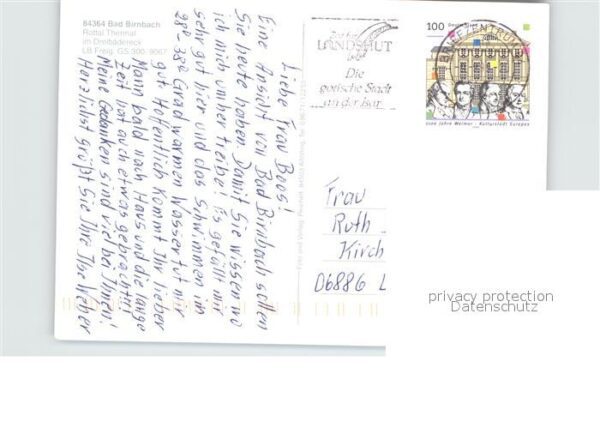 84364 Bad Birnbach
Rottal Thermal
im Dreibädereck
LB Freig. GS 300, 9067
Liebe Frau Boos!
Eine Ansicht von Bad Birnbach sollen
Sie heute haben. Damit Sie wissen wo
ich mich umher treibe! Es gefällt mir
sehr gut hier und das Schwimmen im
28°-38° Grad warmen Wasser tut
gut. Hoffentlich kommt Ihr lieber
Mann bald nach Haus und die lange
Zeit hat auch etwas gebracht.
Meine Gedanken sind viel bei Ihnen!
Herzlichst grüßt Sie Ihre Ilse Weber
LANDSHUT
Die
gotische Stadt
an der Isar
BRIEFZENTRUM
100
Deutschland
1100 Jahre Weimar - Kulturstadt Europas
Frau
Ruth
Kirch
06886 L
privacy protection
Datenschutz